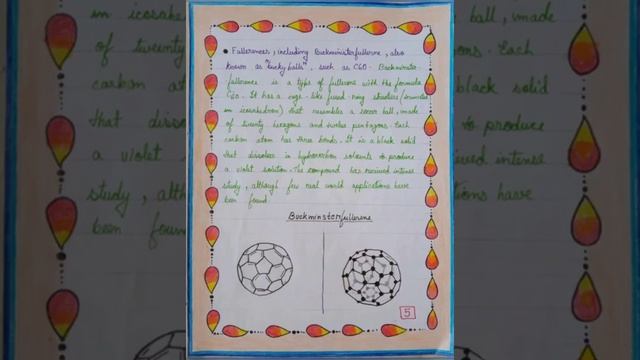 • Fullerences, including Buckministerfullerene, also
known as "bucky balls", such as C60. Buckminster-
fullerence is a type of fullerene with the formula
C60. It has a cage-like fused-ring structure (truncated
in icosahedron) that resembles a soccer ball, made
of twenty hexagons and twelve pentagons. Each
carbon atom has three bonds. It is a black solid
that dissolves in hydrocarbon solvents to produce
a violet solution. The compound has received intense
study, although few real world applications have
been found
Buckminsterfullerene
5